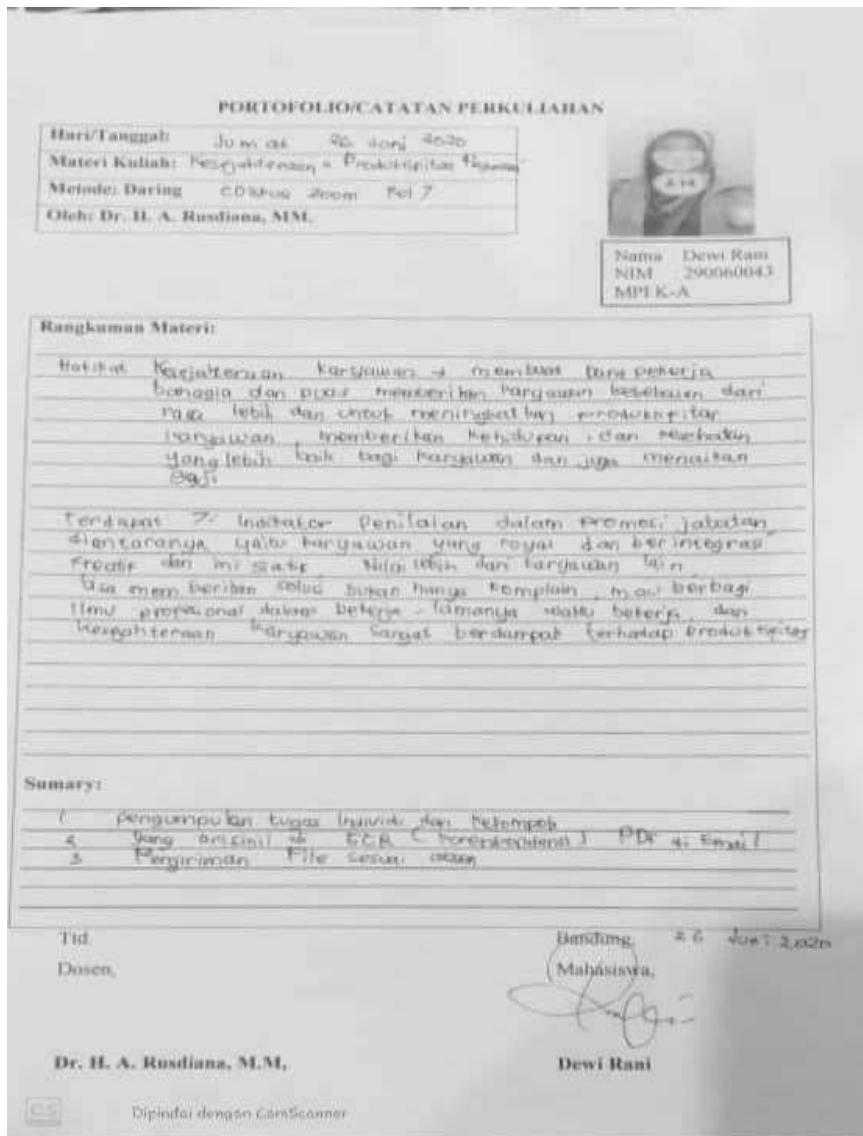 PORTOFOLIO/CATATAN PERKULIAHAN
Hari/Tanggal: Jum at 26 Juni 2020
Materi Kuliah: Kesejahteraan Produktipitas
Metode: Daring Zoom
Oleh: Dr. H. A. Rusdiana, MM.
Nama Dewi Rani
NIM 290060043
MPI K-A
Rangkuman Materi:
Kesejahteraan karyawan membuat pekerja
bahagia dan puas memberikan karyawan dari
rasa lebih dan untuk meningkatkan produktipitas
karyawan, memberikan kehidupan, dan kesehatan
yang lebih baik bagi karyawan dan juga menaikan
gaji
Terdapat 7 Indikator Penilaian dalam Promosi jabatan
diantaranya yaitu karyawan yang royal dan berintegrasi
Kreatif dan ini siatif Nilai lebih dari karyawan lain
bisa mem berikan solusi bukan hanya Komplain, mau berbagi
Ilmu dalam bekerja, lamanya waktu bekerja, dan
karyawan sangat berdampak terhadap produktipitas
Sumary:
1 Pengumpulan tugas Individu dan Kelompok
2 Yang orisinil PDF di Email
3 Pengiriman File sesuai
Ttd
Dosen,
Bandung, 26 Juni 2020
Mahasiswa,
Dr. H. A. Rusdiana, M.M.
Dewi Rani
CS Dipindai dengan CamScanner